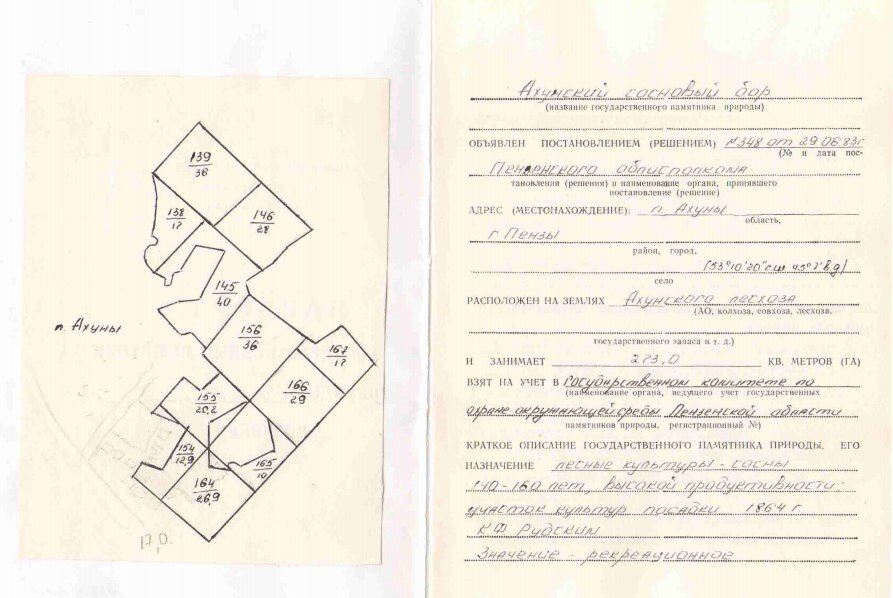 139
36
138
17
146
28
145
40
п. Ахуны
156
36
167
17
166
29
155
20,2
154
12,9
165
10
164
26,9
17,0.
Ахунский сосновый бор
(название государственного памятника природы)
ОБЪЯВЛЕН ПОСТАНОВЛЕНИЕМ (РЕШЕНИЕМ) №348 от 29.06.83г
(№ и дата пос-
Пензенского облисполкома
тановления (решения) и наименование органа, принявшего
постановление (решение)
АДРЕС (МЕСТОНАХОЖДЕНИЕ): п. Ахуны
область,
г Пензы
район, город,
(53°10'20"сш 45°7'вд)
село
РАСПОЛОЖЕН НА ЗЕМЛЯХ Ахунского лесхоза
(АО, колхоза, совхоза, лесхоза,
государственного запаса и т. д.)
И ЗАНИМАЕТ 273,0 КВ. МЕТРОВ (ГА)
ВЗЯТ НА УЧЕТ В Государственном комитете по
(наименование органа, ведущего учет государственных
охране окружающей среды Пензенской области
памятников природы, регистрационный №)
КРАТКОЕ ОПИСАНИЕ ГОСУДАРСТВЕННОГО ПАМЯТНИКА ПРИРОДЫ, ЕГО
НАЗНАЧЕНИЕ лесные культуры - сосны
140-160 лет, высокой продуктивности;
участок культур посадки 1864 г.
К.Ф Рудским
Значение - рекреационное